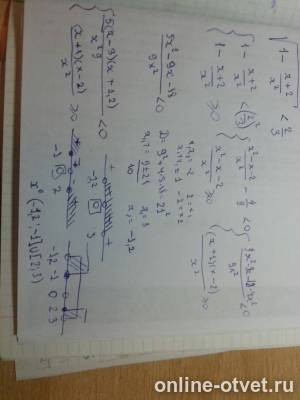 √(1 - (x+2)/x²) < 2/3
{ 1 - (x+2)/x² < (2/3)²
1 - (x+2)/x² ≥ 0
{ (x²-x-2)/x² - 4/9 < 0
(x²-x-2)/x² ≥ 0
{ (9x²-9x-18-4x²)/9x² < 0
(x+1)(x-2)/x² ≥ 0
(5x²-9x-18)/9x² < 0
D = 9²+4·5·18 = 21²
x₁,₂ = (9±21)/10
x₁ = 3
x₂ = -1,2
x₁x₂ = -2
x₁+x₂ = 1
{ 5(x-3)(x+1,2)/x²·9 < 0
(x+1)(x-2)/x² ≥ 0
-1,2 0 3
-1 0 2
-1,2 -1 0 2 3
x ∈ (-1,2; -1] ∪ [2; 3)
online-otvet.ru